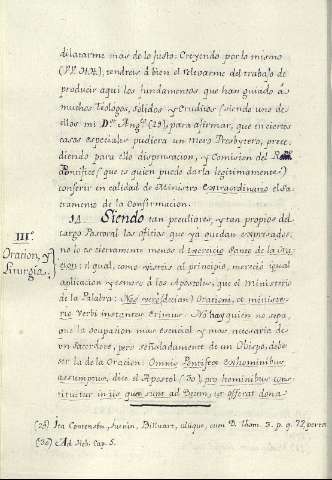 dilatarme mas de lo justo. Creyendo por lo mismo
(VV. HH.), tendreis á bien el relevarme del trabajo de
producir aqui los fundamentos que han guiado á
muchos Teologos, solidos y eruditos (siendo uno de
ellos mi Dr. Angº (29), para afirmar, que en ciertos
casos especiales pudiera un mero Presbytero, prece
diendo para ello dispensacion, y Comision del
Pontifice (que es quien puede darla legitimamente)
conferir en calidad de Ministro extraordinario el Sa
cramento de la Confirmacion.
14 Siendo tan peculiares, y tan propios del
cargo Pastoral los oficios que ya quedan expresados;
no lo es ciertamente menos el exercicio Santo de la Ora
cion: el qual, como visteis al principio, mereció igual
aplicacion y esmero á los Apostoles, que el Ministerio
de la Palabra: Nos vero (decian) Orationi, et ministe
rio Verbi instantes Erimus. No hay quien no sepa,
que la ocupacion mas esencial y mas necesaria de
un Sacerdote, pero señaladamente de un Obispo, debe
ser la de la Oracion: Omnis Pontifex ex hominibus
assumptus, dice el Apostol (30), pro hominibus cons
tituitur in iis que sunt ad Deum, ut offerat dona
IIIº
Oracion, y
Liturgia.
(29) Ita Contenson, Juenin, Billuart, aliique, cum D. Thom. 3. p. q. 72
(30) Ad Heb. Cap. 5.